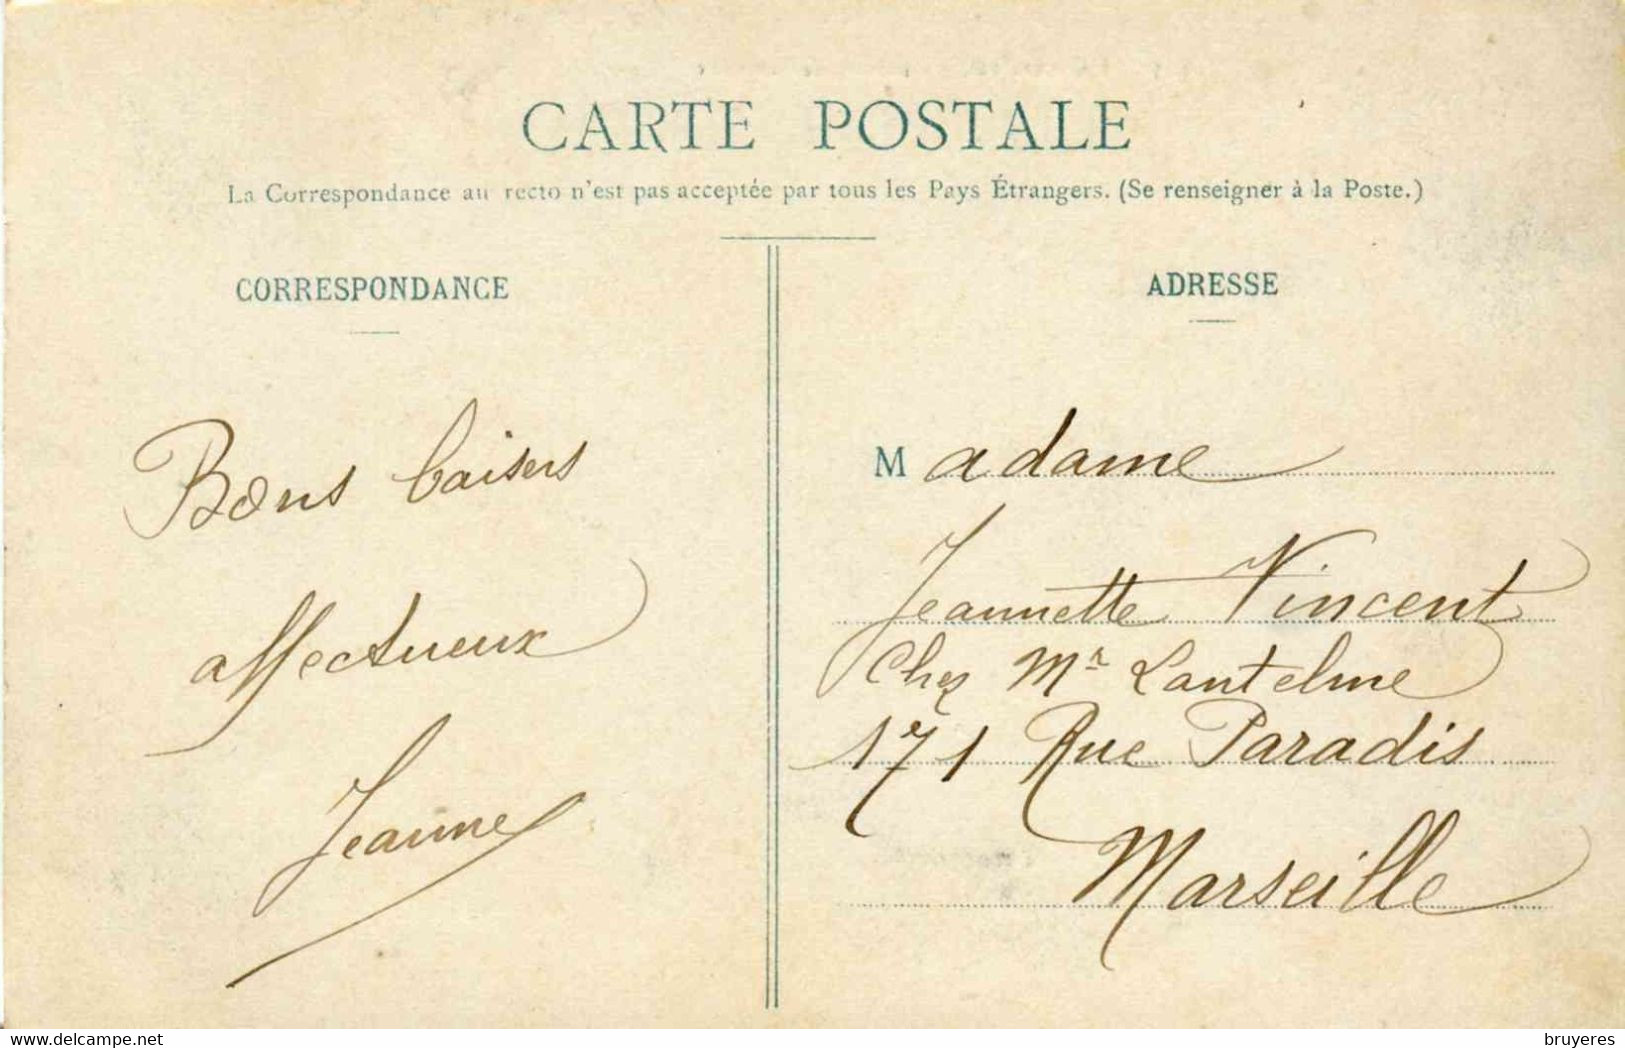 CARTE POSTALE
La Correspondance au recto n'est pas acceptée par tous les Pays Étrangers. (Se renseigner à la Poste.)
CORRESPONDANCE
Bons baisers
affectueux
Jeanne
ADRESSE
Madame
Jeannette Vincent
Chez Mr Lantelme
171 Rue Paradis
Marseille
www.delcampe.net
bruyeres